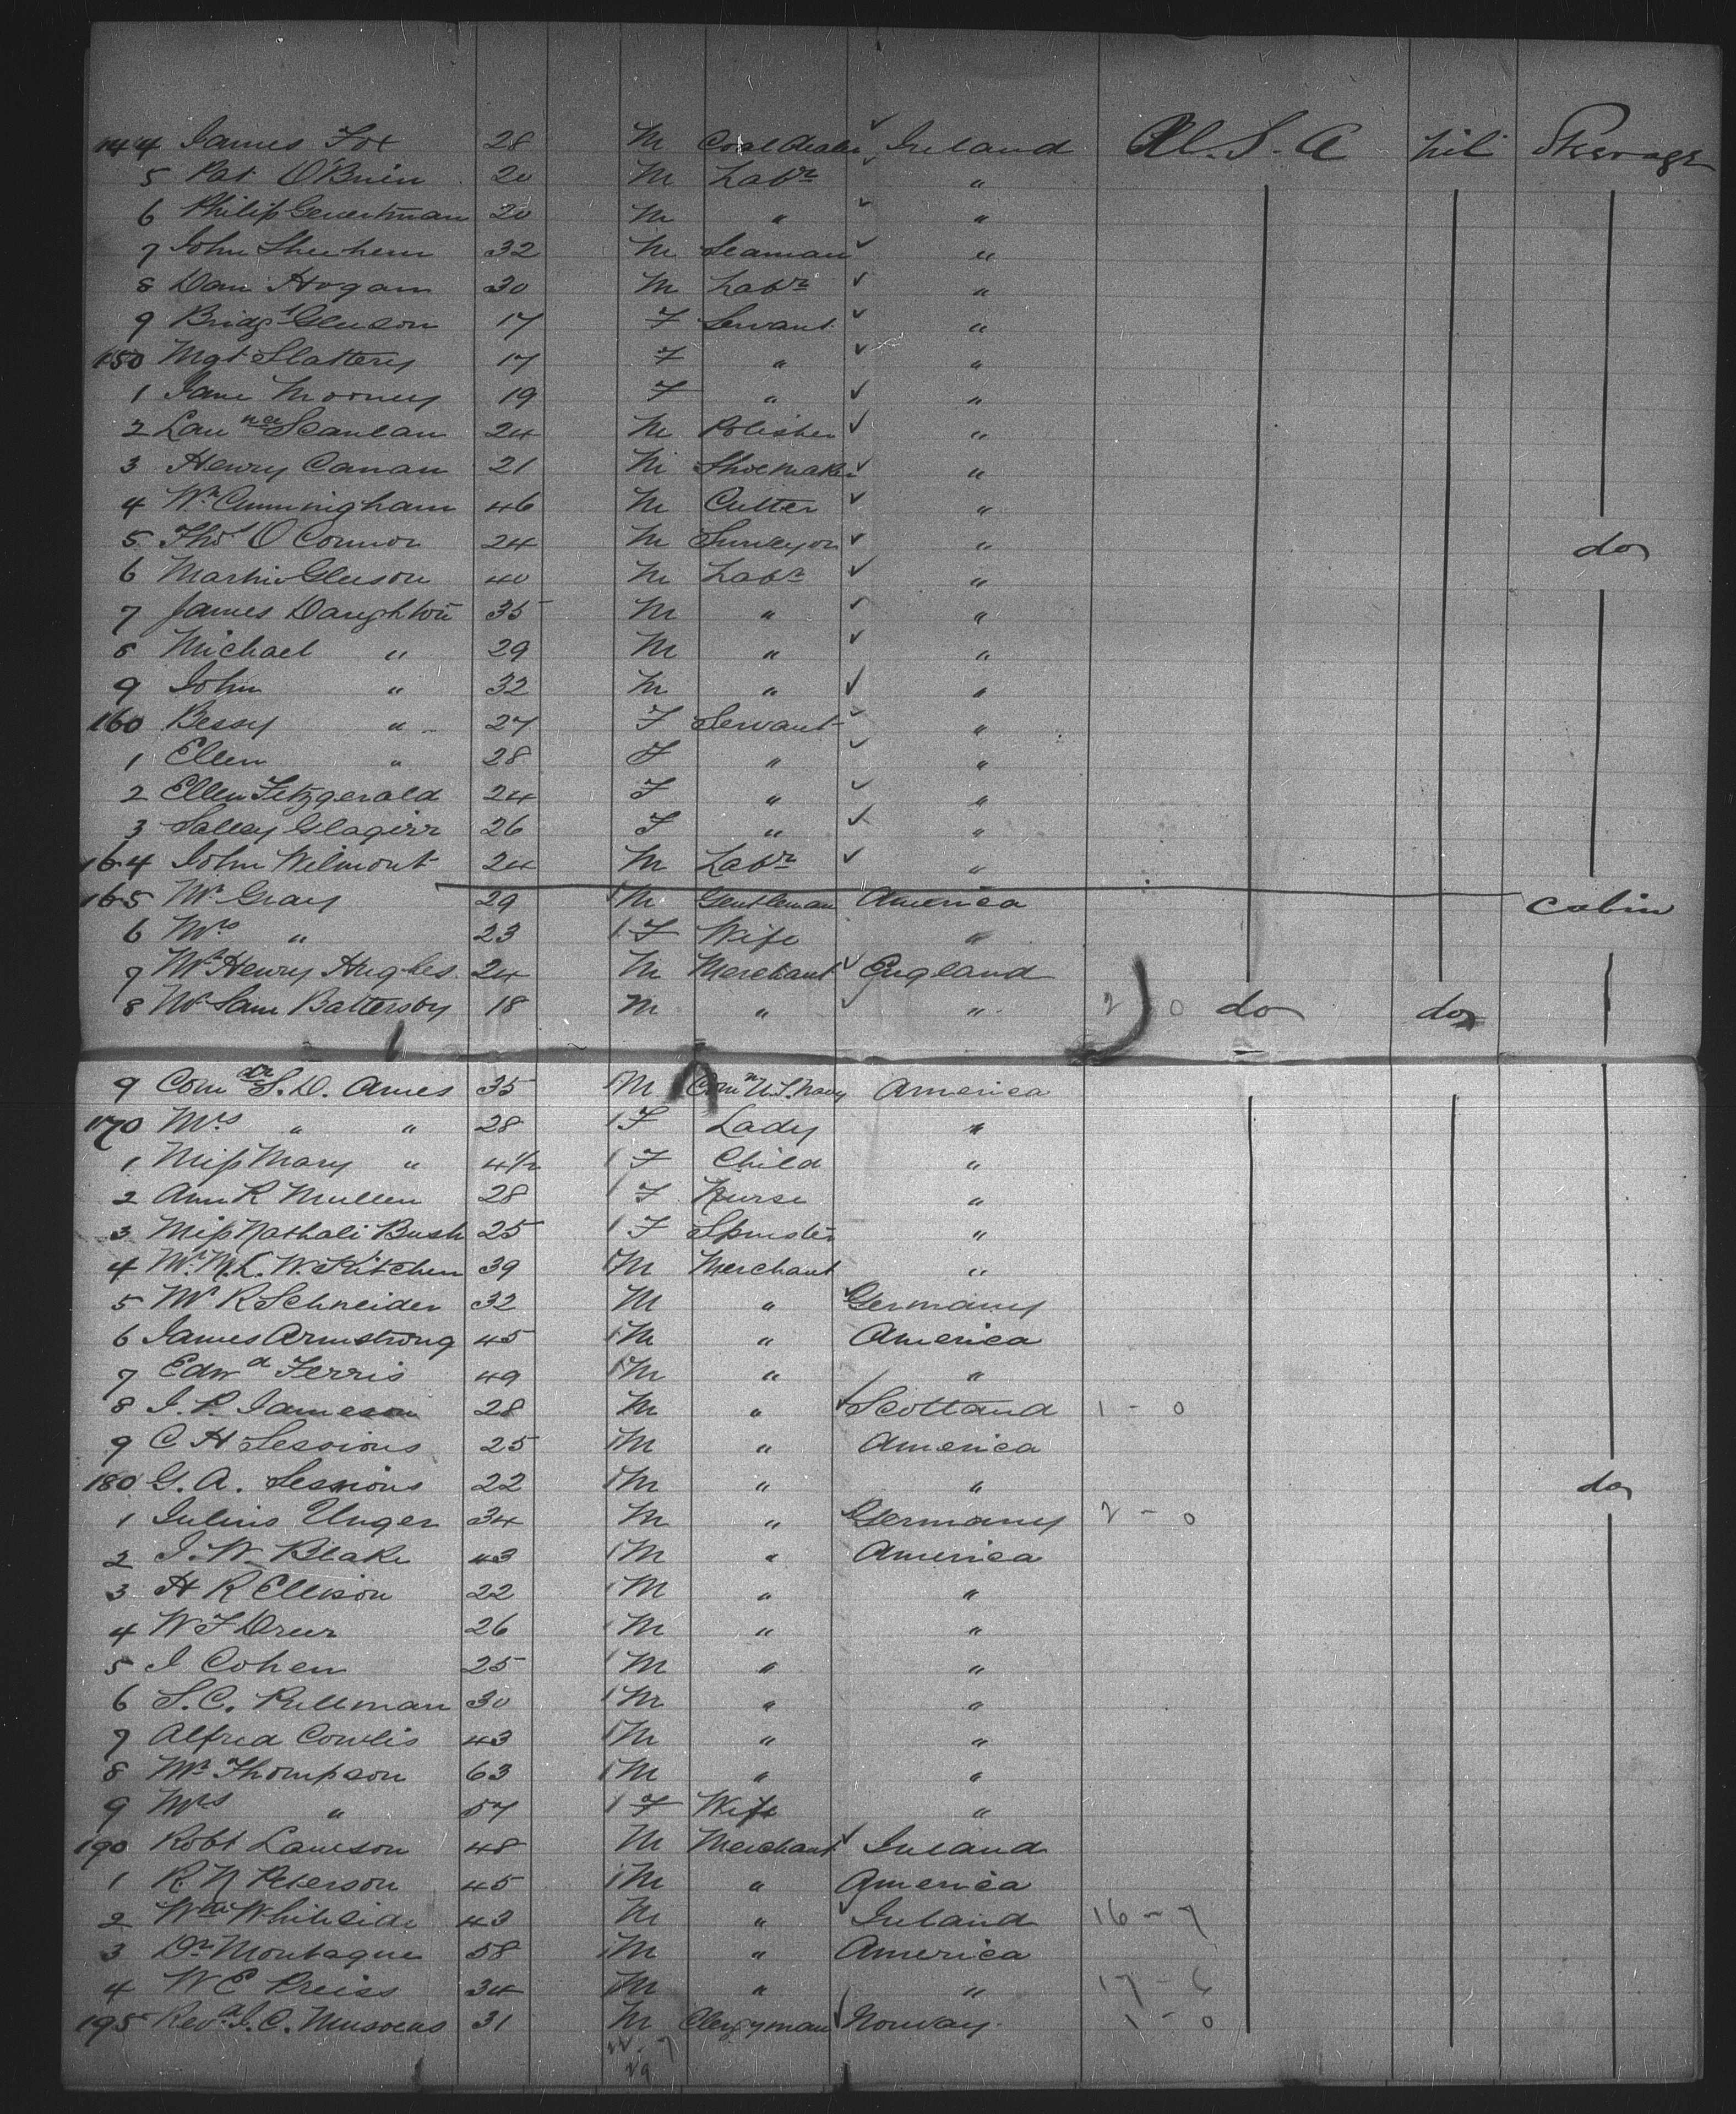 144 James Fox 28 M Coal Dealer Ireland U.S.A nil Steerage
5 Pat O'Brien 20 M Labr "
6 Philip 20 M " "
7 John 32 M Seaman "
8 Dan Hogan 30 M Labr "
9 Bridgt Gleeson 17 F Servant "
150 Mgt Slattery 17 F " "
1 Jane Mooney 19 F " "
2 Launce Scanlan 24 M Polisher "
3 Henry Canan 21 M Shoemaker "
4 Wm Cunningham 46 M Cutter "
5 Thos O Connor 24 M Surveyor " do
6 Martin Gleeson 40 M Labr "
7 James Daughton 35 M " "
8 Michael " 29 M " "
9 John " 32 M " "
160 Bessy " 27 F Servant "
1 Ellen " 28 F " "
2 Ellen Fitzgerald 24 F " "
3 Salley 26 F " "
164 John Wilmont 24 M Labr "
165 Mr Gray 29 M Gentleman America Cabin
6 Mrs " 23 F Wife "
7 Mr Henry Hughes 24 M Merchant England
8 Mr Sam Battersby 18 M " " 2 0 do do
9 Comdr S. D. Ames 35 M Comr U.S. Navy America
170 Mrs " " 28 F Lady "
1 Miss Mary " 4½ F Child "
2 Ann R Mullen 28 F Nurse "
3 Miss Nathali Bush 25 F Spinster "
4 Mr. M. L. W Kitchen 39 M Merchant "
5 Mr R Schneider 32 M " Germany
6 James Armstrong 45 M " America
7 Edwd Ferris 49 M " "
8 J. P. Jameson 28 M " Scotland 1 - 0
9 C H Sessions 25 M " America
180 G. A. Sessions 22 M " " do
1 Julius Unger 34 M " Germany 2 - 0
2 J. W. Blake 43 M " America
3 H R Ellison 22 M " "
4 W F Drew 26 M " "
5 J Cohen 25 M " "
6 S. C. Pullman 30 M " "
7 Alfred Cowlis 43 M " "
8 Mr Thompson 63 M " "
9 Mrs " 57 F Wife "
190 Robt Lawson 48 M Merchant Ireland
1 R. N Peterson 45 M " America
2 Wm Whiteside 43 M " Ireland 16 - 7
3 Dr Montague 58 M " America
4 W E Preiss 34 M " " 17 - 6
195 Revd J. C. 31 M Clergyman Norway 1 - 0